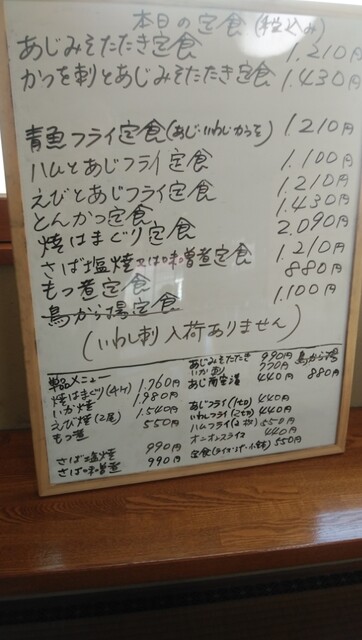 本日の定食(税込み)
あじみそたたき定食 1.210円
かつを刺とあじみそたたき定食 1.430円
青魚フライ定食(あじ・いわし・かつを) 1.210円
ハムとあじフライ定食 1.100円
えびとあじフライ定食 1.210円
とんかつ定食 1.430円
焼はまぐり定食 2.090円
さば塩焼又は味噌煮定食 1.210円
もつ煮定食 880円
鳥から揚定食 1.100円
(いわし刺入荷ありません)
単品メニュー
焼はまぐり(4ヶ) 1.760円
いか焼 1.980円
えび焼(2尾) 1.540円
もつ煮 550円
さば塩焼 990円
さば味噌煮 990円
あじみそたたき 990円
いか刺 770円
あじ南蛮漬 440円
鳥から揚 880円
あじフライ(1枚) 440円
いわしフライ(2枚) 440円
ハムフライ(2枚) 550円
オニオンスライス 440円
定食(ライス・みそ汁・小鉢) 550円